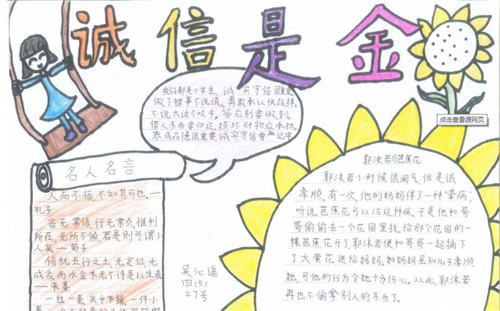 诚信是金
我们都是小学生，诚实守信很重要
做了错事不说谎，勇敢承认快改掉
不说大话不吹牛，答应别要做到
借人东西要归还，损坏财物应承担
养成品德很重要，诚实守信要牢记
点击查看源网页
名人名言
人而不信，不知其可也。——
孔子
言无常信，行无常贞，惟利
所在，无所不倾，若是则可谓小
人矣——荀子
信犹五行之土，无定位，无
成名，而水金木无不待是以生者
——朱熹
一丝一毫关乎节操，一件小
吴沁遥
四(5)
27号
郭沫若与芭蕉花
郭沫若小时候很淘气，但是很
孝顺。有一次，他的妈妈得了一种"晕病"，
听说芭蕉花可以治这种病，于是他和哥
哥偷偷去一个花园里找，恰那个花园的一
棵芭蕉花开了，郭沫若便和哥哥一起摘下
了大黄花送给妈妈。
她，可他的行为令她十分伤心。从此，郭沫若
再也不偷拿别人的东西了。